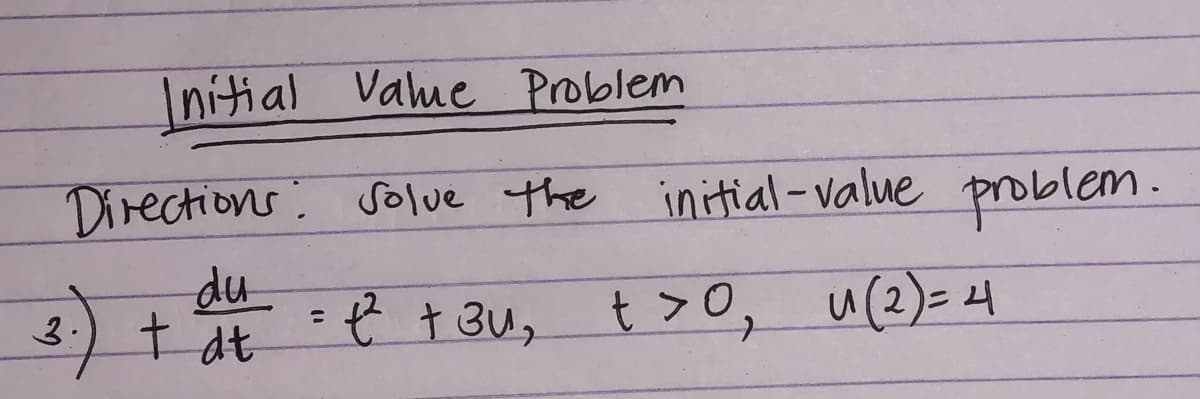 Initial Value Problem
Directions: Solve the initial-value problem.
3.) t du/dt = t² + 3u, t > 0, u(2) = 4